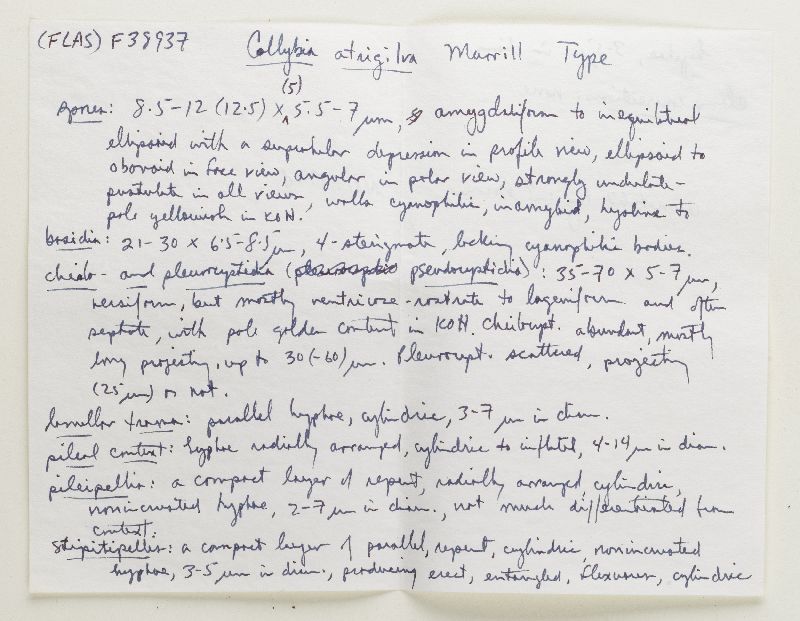 (FLAS) F38937 Collybia atrigilva Murrill Type
(5)
spores: 8.5-12 (12.5) x 5.5-7 µm, amygdaliform to inequilateral
ellipsoid with a suprahilar depression in profile view, ellipsoid to
obovoid in face view, angular in polar view, strongly undulate-
pustulate in all views, walls cyanophilic, inamyloid, hyaline to
pale yellowish in KOH.
basidia: 21-30 x 6.5-8.5 µm, 4-sterigmate, lacking cyanophilic bodies.
cheilo- and pleurocystidia (pseudocystidia): 35-70 x 5-7 µm,
versiform, but mostly ventricose-rostrate to lageniform and often
septate, with pale golden content in KOH. Cheilocyst. abundant, mostly
long projecting, up to 30 (-60) µm. Pleurocyst. scattered, projecting
(25 µm) or not.
lamellar trama: parallel hyphae, cylindric, 3-7 µm in diam.
pileal context: hyphae radially arranged, cylindric to inflated, 4-14 µm in diam.
pileipellis: a compact layer of repent, radially arranged, cylindric,
nonincrusted hyphae, 2-7 µm in diam., not much differentiated from
context.
stipitipellis: a compact layer of parallel, repent, cylindric, nonincrusted
hyphae, 3-5 µm in diam., producing erect, entangled, flexuous, cylindric